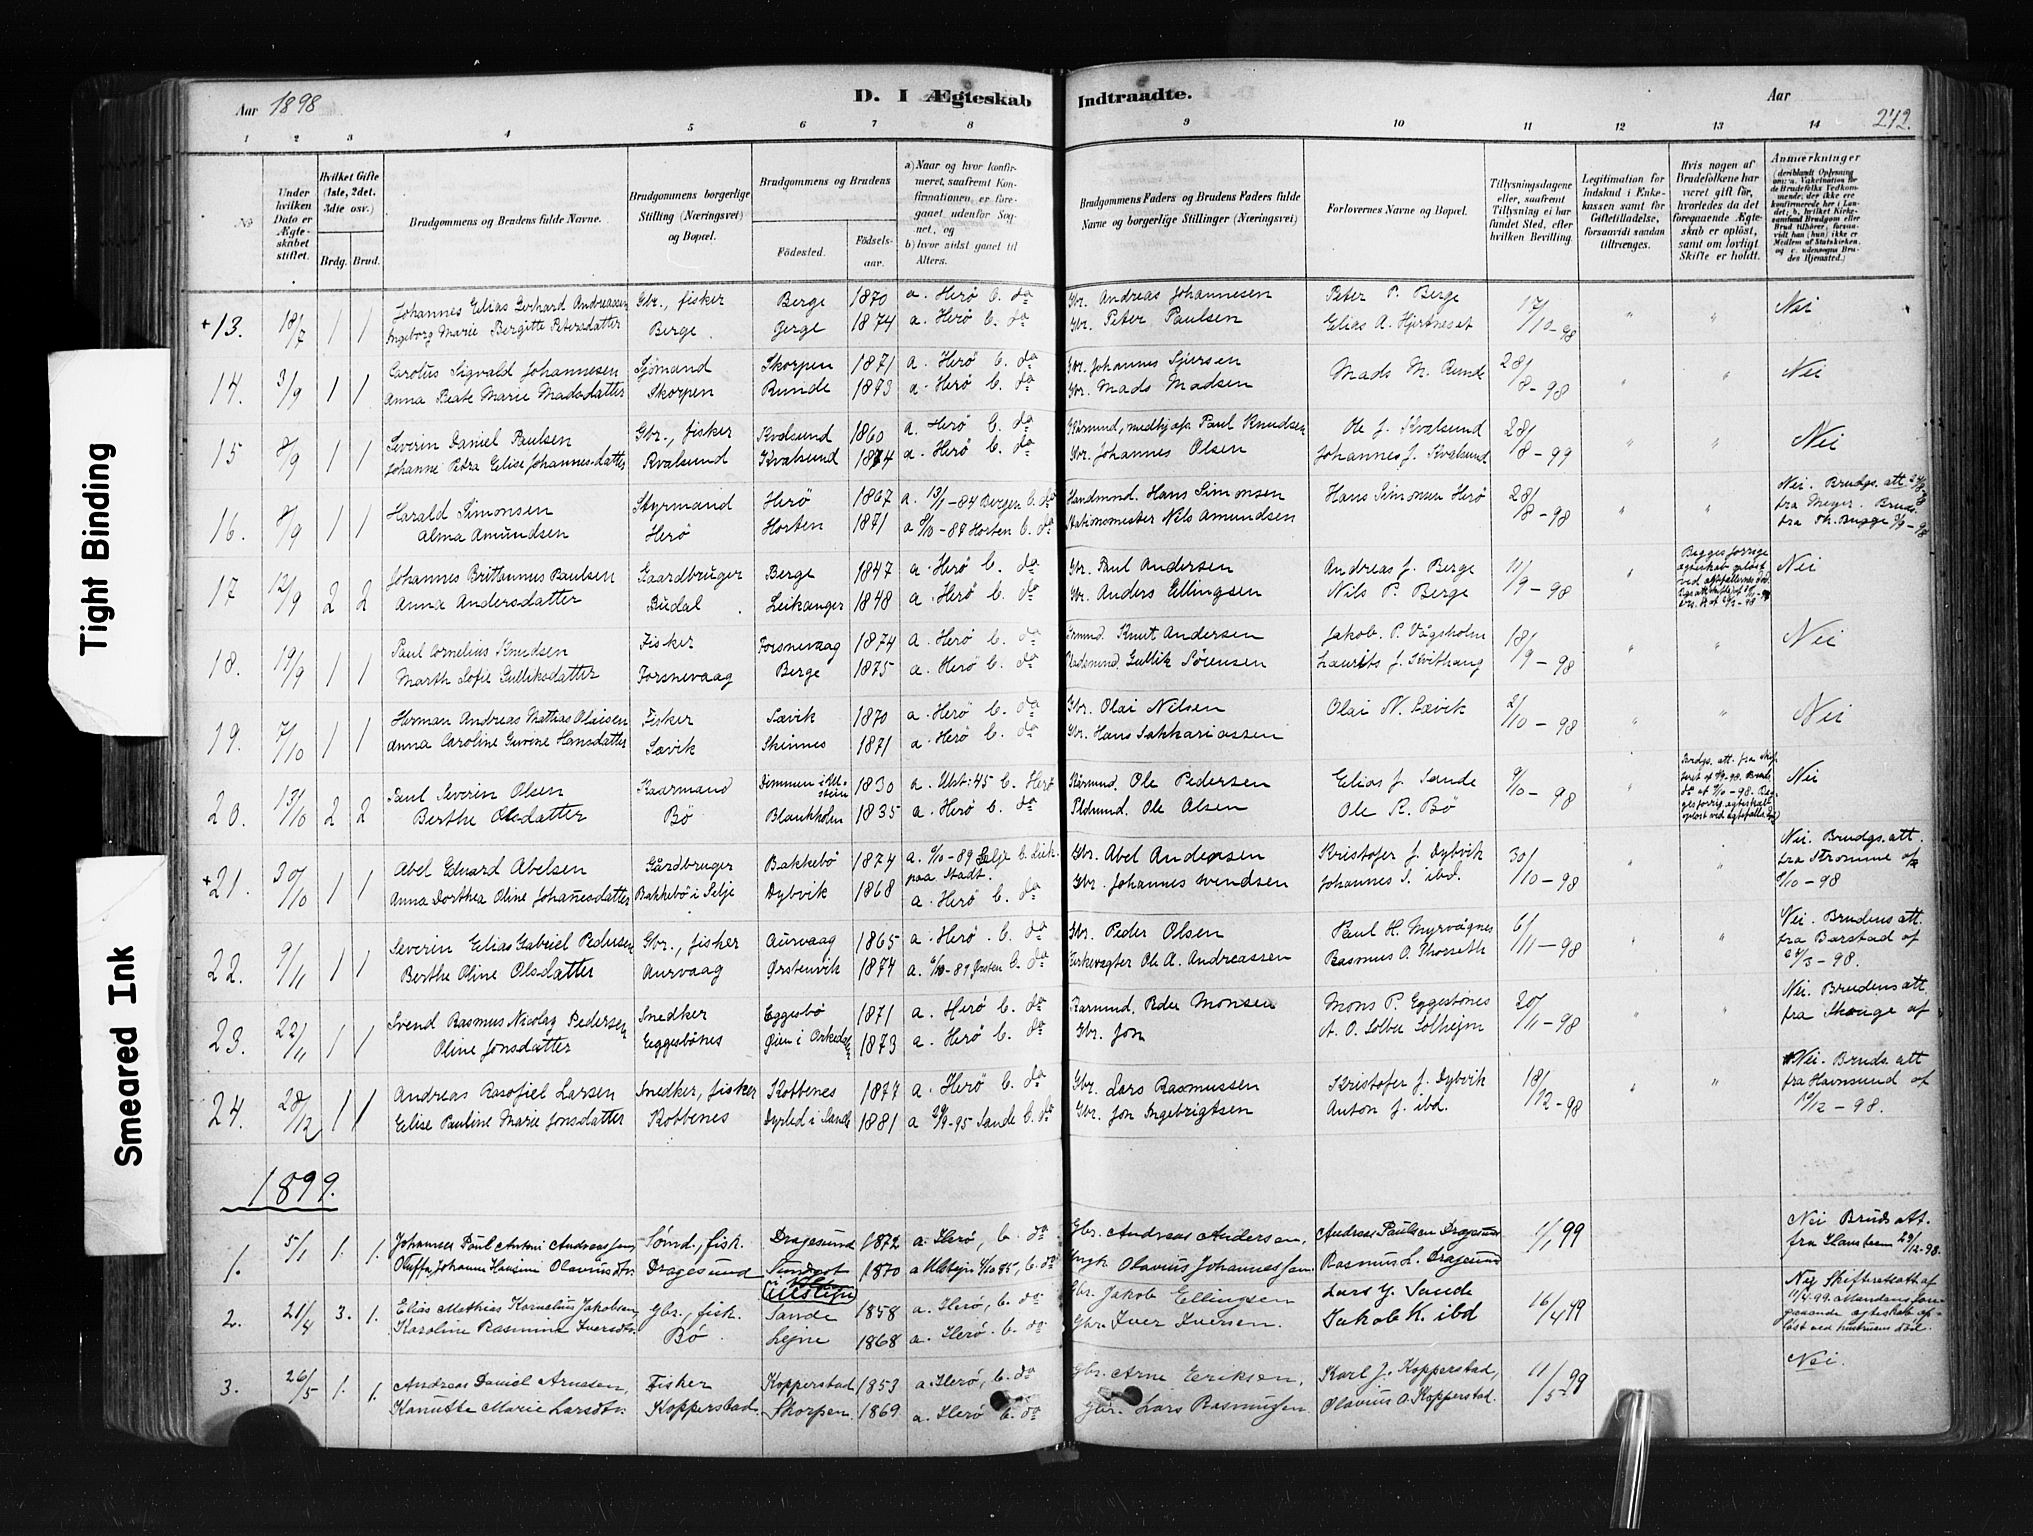 Tight Binding
Smeared Ink
Aar 1898
D. I Ægteskab Indtraadte.
Aar
242.
1 2 3 4 5 6 7 8 9 10 11 12 13 14
No
Under hvilken Dato er Ægteskabet stiftet.
Hvilket Gifte (1ste, 2det, 3dte osv.)
Brdg. Brud.
Brudgommens og Brudens fulde Navne.
Brudgommens borgerlige Stilling (Næringsvei) og Bopæl.
Brudgommens og Brudens
Födested.
Födselsaar.
a) Naar og hvor konfirmeret, saafremt Konfirmationen er foregaaet udenfor Sognet, og
b) hvor sidst gaaet til Alters.
Brudgommens Faders og Brudens Faders fulde Navne og borgerlige Stillinger (Næringsvei)
Forlovernes Navne og Bopæl.
Tillysningsdagene eller, saafremt Tillysning ei har fundet Sted, efter hvilken Bevilling.
Legitimation for Indskud i Enkekassen samt for Giftetilladelse, forsaavidt saadan tiltrænges.
Hvis nogen af Brudefolkene har været gift för, hvorledes da det foregaaende Ægteskab er oplöst, samt om lovligt Skifte er holdt.
Anmærkninger
+13. 18/7 1 1 Johannes Elias Gerhard Andreassen Gbr., fisker Berge 1870 a. Herö b. do Gbr. Andreas Johannesen Peter P. Berge 17/10-98 " " Nei
Ingeborg Marie Bergitte Petersdatter Berge Gerge 1874 a. Herö b. do Gbr. Peter Paulsen Elias A. Hjertneset
14. 3/9 1 1 Carolus Sigvald Johannesen Sjömand Skorpen 1871 a. Herö b. do Gbr. Johannes Sjursen Mads M. Runde 28/8-98 " " Nei
Anna Beate Marie Madsdatter Skorpen Runde 1873 a. Herö b. do Gbr. Mads Madsen
15 8/9 1 1 Severin Daniel Paulsen Gbr., fisker Kvalsund 1860 a. Herö b. do Paul Knudsen Ole J. Kvalsund 28/8-99 " " Nei
Johanne Petra Elise Johannesdatter Kvalsund Kvalsund 1874 a. Herö b. do Gbr. Johannes Olsen Johannes J. Kvalsund
16. 8/9 1 1 Harald Simonsen Styrmand Herö 1867 a. 13/1-84 Bergen b. do Handmnd. Hans Simonsen Hans Simonsen Herö 28/8-98 " " Nei. Brudgs. att.
Alma Amundsen Herö Horten 1871 a 9/10-87 Horten b. do Stationsmester Nils Amundsen fra Meyer. Brud.
17 12/9 2 2 Johannes Brittannus Paulsen Gaardbruger Berge 1847 a. Herö b. do Gbr. Paul Andersen Andreas J. Berge 11/9-98 " Begges forrige Nei
Anna Andersdatter Budal Leikanger 1848 a. Herö b. do Gbr. Anders Ellingsen Nils P. Berge
18. 19/9 1 1 Paul Cornelius Knudsen Fisker Forsnevaag 1874 a. Herö b. do Knut Andersen Jakob. P. Vågsholm 18/9-98 " " Nei
Marth Sofie Gulliksdatter Forsnevaag Berge 1875 a. Herö b. do Gullik Sörensen Laurits J.
19. 7/10 1 1 Herman Andreas Mathias Olaisen Fisker Sævik 1870 a. Herö b. do Gbr. Olai Nilsen Olai N. Sævik 2/10-98 " " Nei
Anna Caroline Hansdatter Sævik Skinnes 1871 a. Herö b. do Gbr. Hans Sakkariassen
20. 13/10 2 2 Paul Severin Olsen Kaarmand 1830 a. Ulst: 45 b. Herö Ole Pedersen Elias J. Sande 9/10-98 " Nei
Berthe Olsdatter Bö Blankholm 1835 a. Herö b. do Ole Olsen Ole R. Bö
+21. 30/10 1 1 Abel Edvard Abelsen Gårdbruger Bakkebö 1874 a. 6/10-89 Selje b. Leik. Gbr. Abel Andersen Kristofer J. Dybvik 30/10-98 " " Nei. Brudgs. att.
Anna Dorthea Oline Johannesdatter Bakkebö i Selje Dybvik 1868 paa Stadt. a. Herö b. do Gbr. Johannes Svendsen Johannes S. ibd. fra Strömme af 9/10-98
22. 9/11 1 1 Severin Elias Gabriel Pedersen Gbr., fisker Aurvaag 1865 a. Herö. b. do Gbr. Peder Olsen Paul H. Myrvågnes 6/11-98 " " Nei. Brudens att.
Berthe Oline Olsdatter Aurvaag Örstenvik 1874 a. 6/10-89 Örsten b. do Kirkevægter Ole A. Andreassen Rasmus O. Thorseth fra Barstad af
23. 22/11 1 1 Svend Rasmus Nicolay Pedersen Snedker Eggesbö 1871 a. Herö b. do Peder Monsen Mons P. Eggesbönes 20/11-98 " " Nei. Brudens att.
Oline Jonsdatter Eggesbönes Öien i Orkedalen 1873 a. Herö b. do Gbr. Jon A. O. Solbu Solheim fra Skauge af
24. 28/12 1 1 Andreas Rasofiel Larsen Snedker, fisker Kobbenes 1877 a. Herö b. do Gbr. Lars Rasmussen Kristofer J. Dybvik 18/12-98 " " Nei. Bruds. att
Elise Pauline Marie Jonsdatter Kobbenes Dyrled i Sande 1881 a 29/9-95 Sande b. do Gbr. Jon Ingebrigtsen Anton J. ibd. fra Havnsund af 10/12-98.
1899.
1. 5/1 1. 1. Johannes Paul Antoni Andreassen Sömd., fisk. Dragesund 1872 a. Herö, b. do Gbr. Andreas Andersen, Andreas Paulsen Dragesund 1/1 99 Nei Bruds att.
Oluffa Johanne Hansine Olaviusdtr. Dragesund i Ulstein 1870 a Ulstein 4/10 85, b. do Olavius Johannessen Rasmus L. Dragesund fra Hansteen 29/12-98.
2. 21/4 3. 1. Elias Mathias Kornelius Jakobsen Gbr., fisk. Sande 1858 a. Herö, b. do Gbr. Jakob Ellingsen Lars Y. Sande 16/4 99 Nei Skifteretsatt af
Karoline Rasmine Iversdtr. Bö Leine 1868 a. Herö. b. do Gbr. Iver Iversen. Jakob K. ibd
3. 26/5 1. 1. Andreas Daniel Arnesen, Fisker Kopperstad 1853 a. Herö, b. do Gbr. Arne Eriksen, Karl J. Kopperstad, 11/5 99 Nei.
Kanutte Marie Larsdtr. Kopperstad. Skorpen. 1869 a. Herö b. do Gbr. Lars Rasmussen Olavius A. Kopperstad.